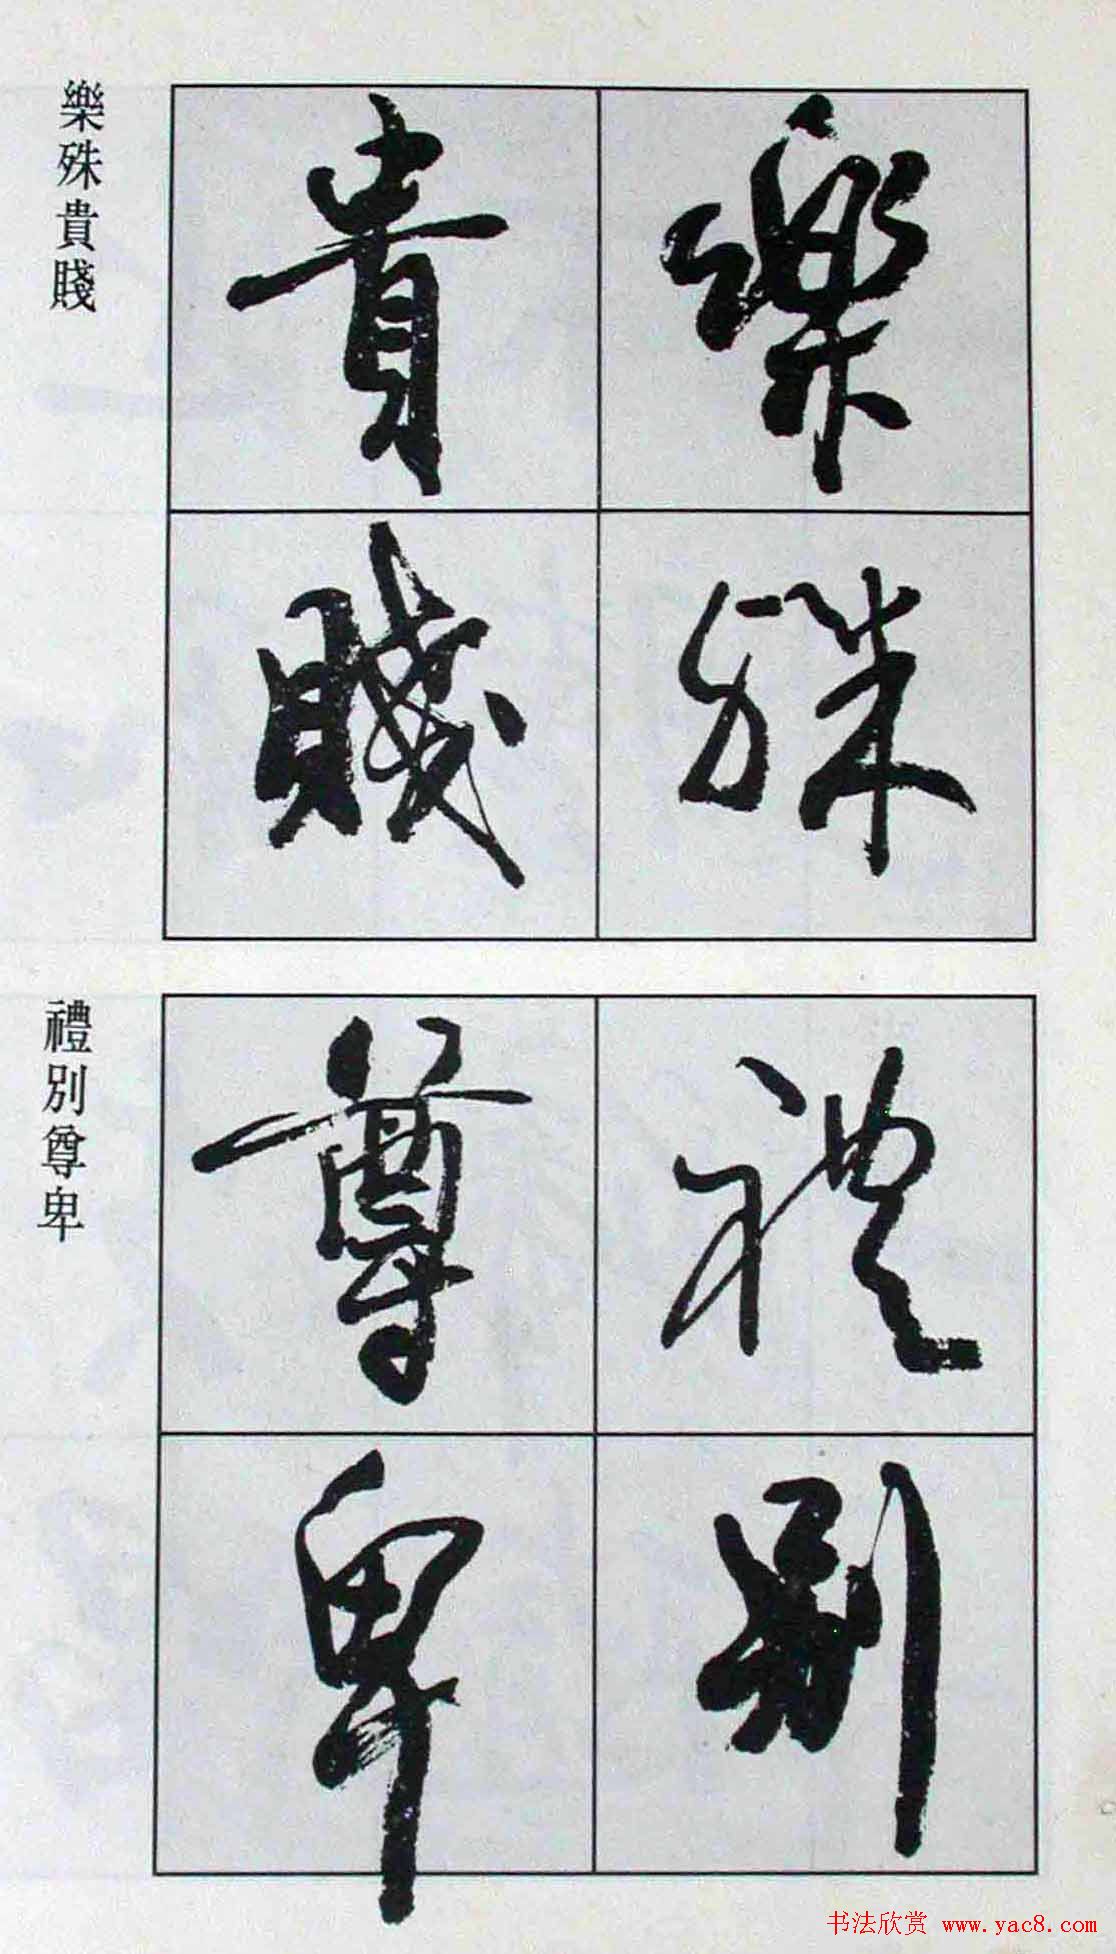 樂殊貴賤
樂殊
貴賤
禮別尊卑
禮別
尊卑
书法欣赏 www.yac8.com